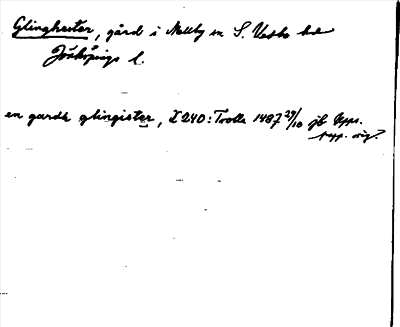 Glinghester, gård i Mellby sn S. Vedbo hd
Jönköpings l.
en gardh glingister, I 240: Trolle 1487 29/10 jb Upps.
papp. orig.